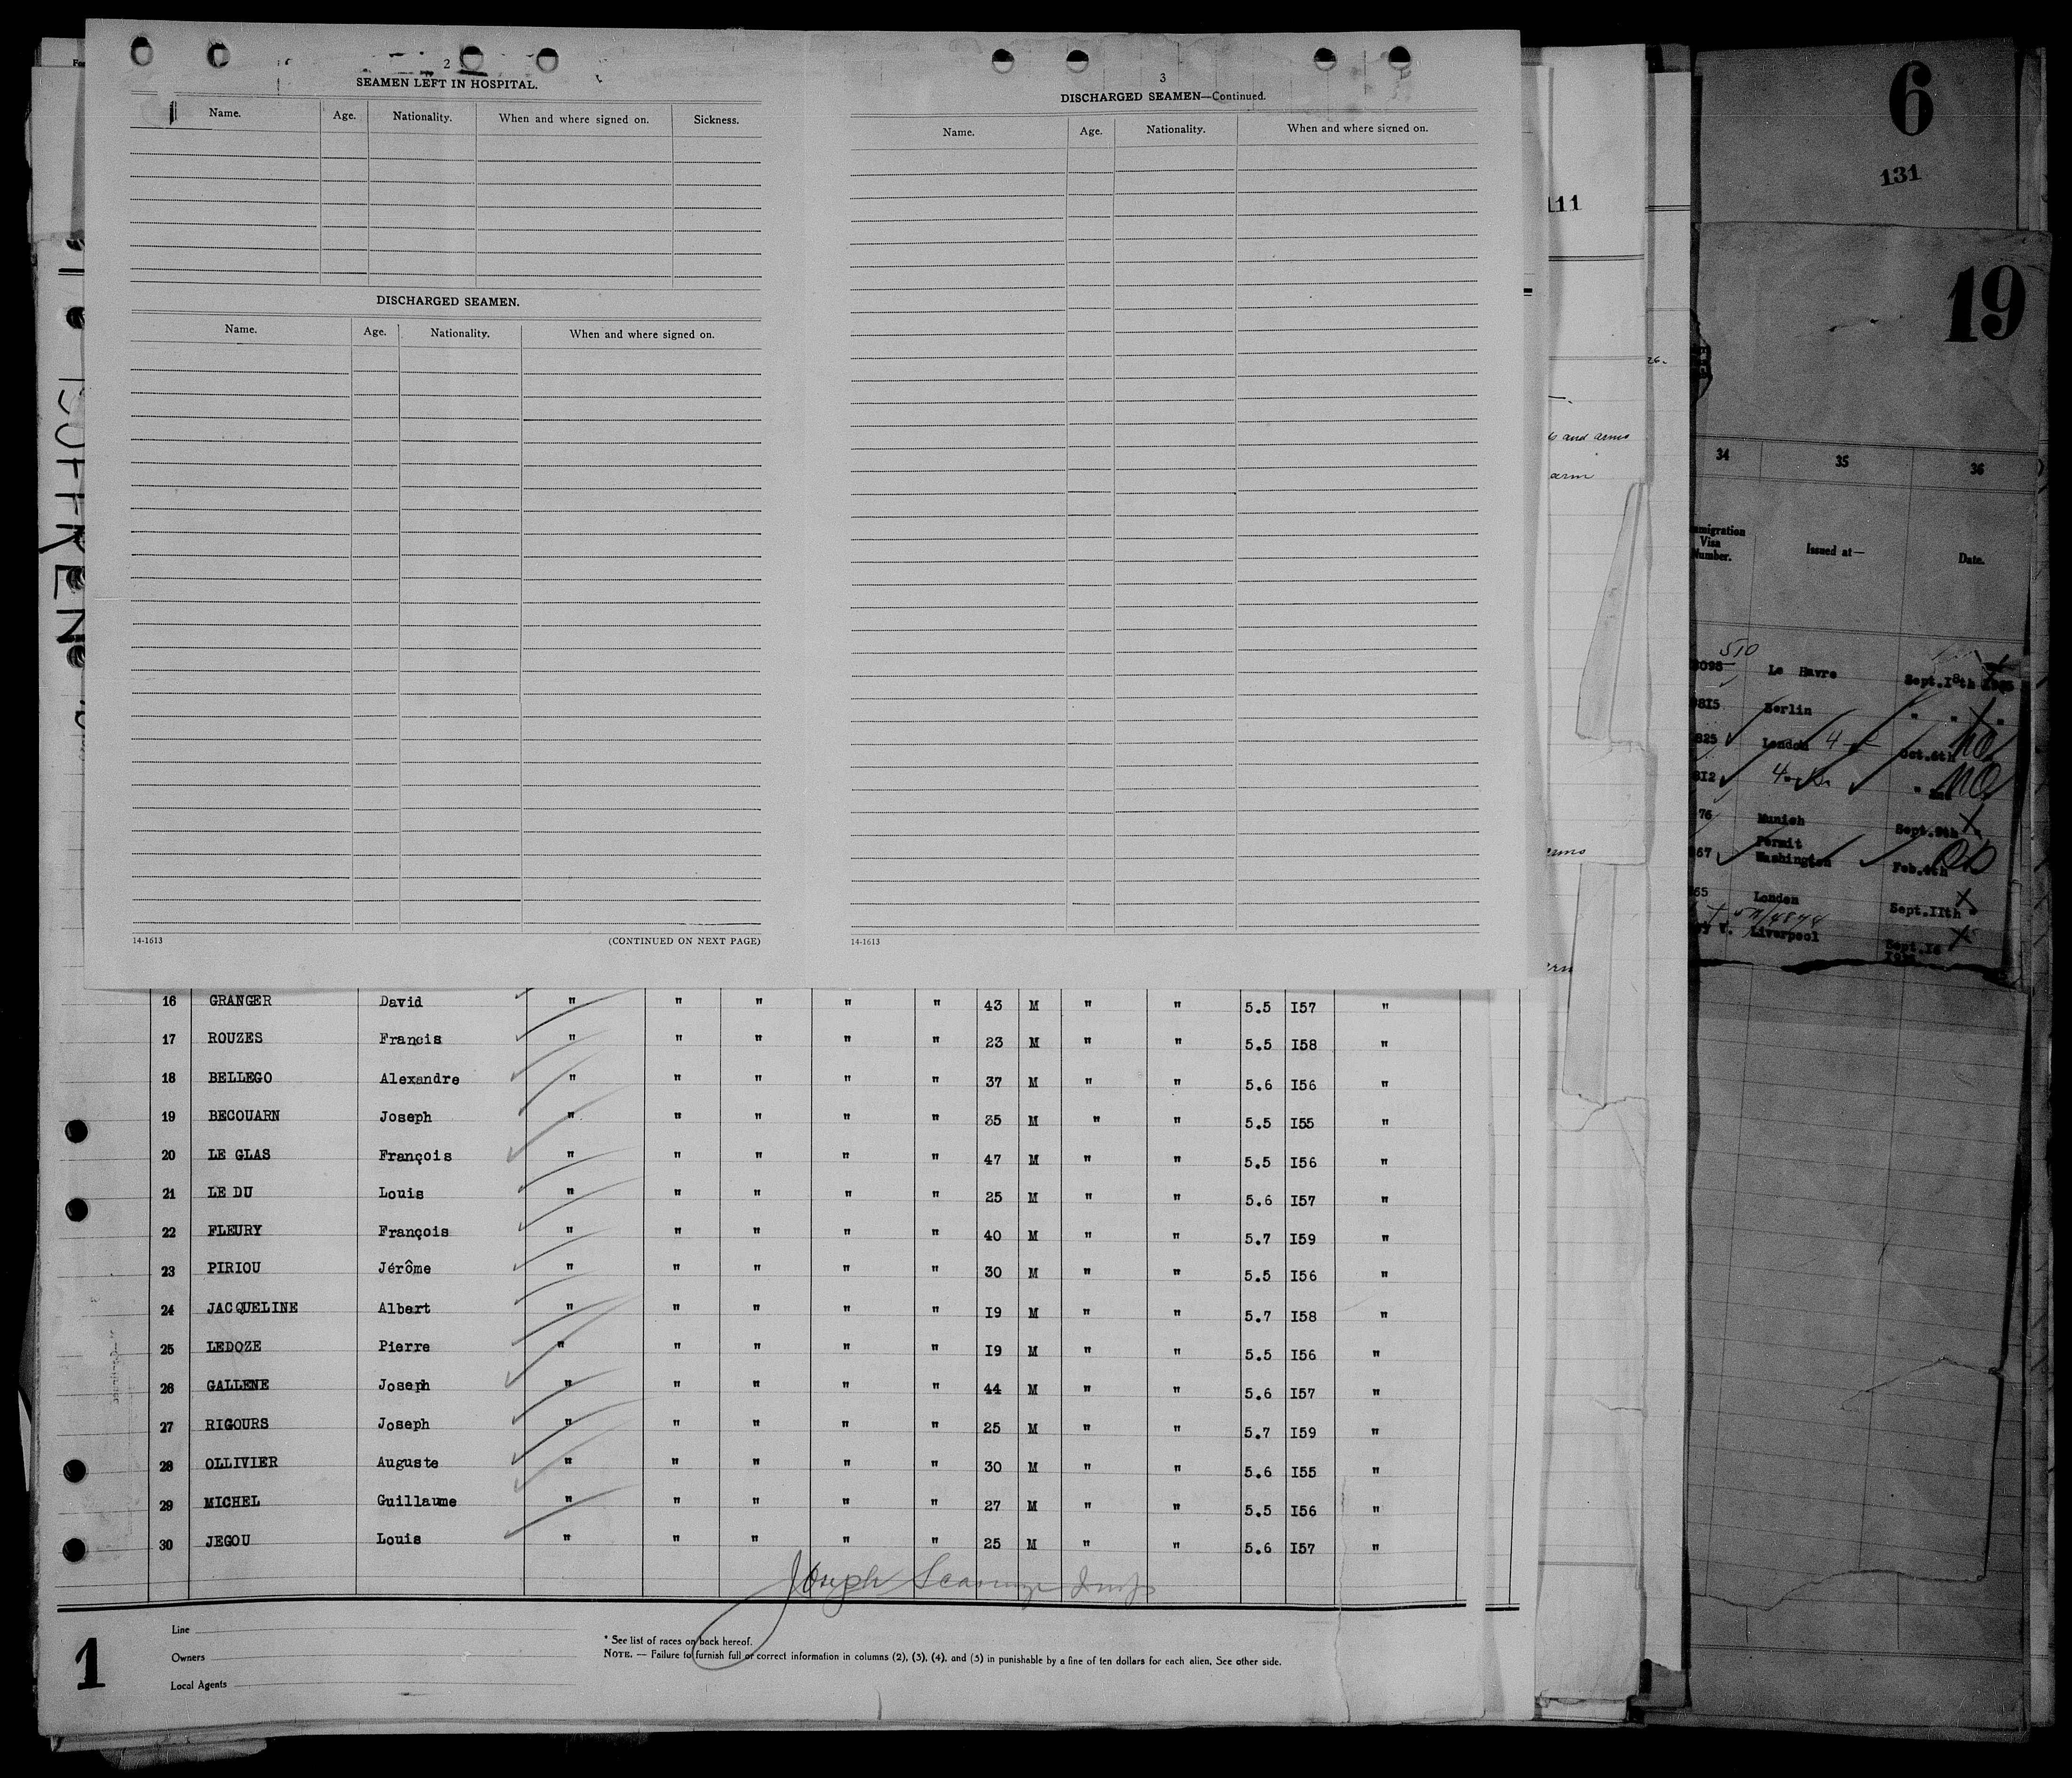 2
SEAMEN LEFT IN HOSPITAL.
Name. Age. Nationality. When and where signed on. Sickness.
DISCHARGED SEAMEN.
Name. Age. Nationality. When and where signed on.
14-1613 (CONTINUED ON NEXT PAGE)
3
DISCHARGED SEAMEN—Continued.
Name. Age. Nationality. When and where signed on.
14-1613
SUFFREN
16 GRANGER David " " " " " 43 M " " 5.5 I57 "
17 ROUZES Francis " " " " " 23 M " " 5.5 I58 "
18 BELLEGO Alexandre " " " " " 37 M " " 5.6 I56 "
19 BECOUARN Joseph " " " " " 35 M " " 5.5 I55 "
20 LE GLAS François " " " " " 47 M " " 5.5 I56 "
21 LE DU Louis " " " " " 25 M " " 5.6 I57 "
22 FLEURY François " " " " " 40 M " " 5.7 I59 "
23 PIRIOU Jérôme " " " " " 30 M " " 5.5 I56 "
24 JACQUELINE Albert " " " " " I9 M " " 5.7 I58 "
25 LEDOZE Pierre " " " " " I9 M " " 5.5 I56 "
26 GALLENE Joseph " " " " " 44 M " " 5.6 I57 "
27 RIGOURS Joseph " " " " " 25 M " " 5.7 I59 "
28 OLLIVIER Auguste " " " " " 30 M " " 5.6 I55 "
29 MICHEL Guillaume " " " " " 27 M " " 5.5 I56 "
30 JEGOU Louis " " " " " 25 M " " 5.6 I57 "
Joseph
Line
Owners
Local Agents
* See list of races on back hereof.
NOTE. — Failure to furnish full or correct information in columns (2), (3), (4), and (5) in punishable by a fine of ten dollars for each alien, See other side.
1
111
and arms
arm
6
131
19
34 35 36
Immigration Visa Number. Issued at— Date.
510
Le Havre Sept.I8th
Berlin " " "
825 London Oct.
812
76 Munich Sept.9th
67 Permit Washington Feb.4th
65 London Sept.IIth
Liverpool Sept.